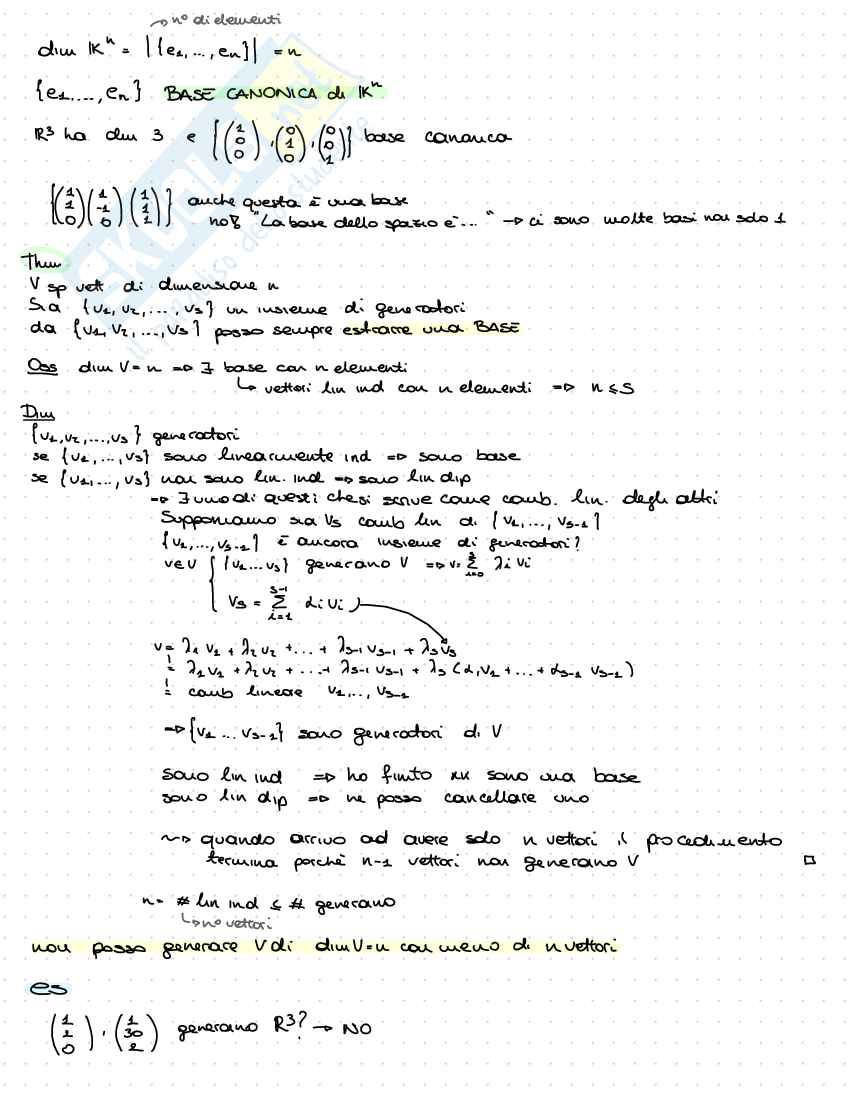 → n° di elementi
dim 𝕂ⁿ = |{e₁, ..., eₙ}| = n
{e₁, ..., eₙ} BASE CANONICA di 𝕂ⁿ
ℝ³ ha dim 3 e {(1 0 0), (0 1 0), (0 0 1)} base canonica
{(1 1 0) (1 -1 0) (1 1 1)} anche questa è una base
no! "La base dello spazio è..." → ci sono molte basi non solo 1
Thm
V sp vett di dimensione n
Sia {v₁, v₂, ..., vₛ} un insieme di generatori
da {v₁, v₂, ..., vₛ} posso sempre estrarre una BASE
Oss dim V = n ⇒ ∃ base con n elementi
↳ vettori lin ind con n elementi ⇒ n ≤ s
Dim
{v₁, v₂, ..., vₛ} generatori
se {v₁, ..., vₛ} sono linearmente ind ⇒ sono base
se {v₁, ..., vₛ} non sono lin. ind ⇒ sono lin dip
⇒ ∃ uno di questi che si scrive come comb. lin. degli altri
Supponiamo sia vₛ comb lin di {v₁, ..., vₛ₋₁}
{v₁, ..., vₛ₋₁} è ancora insieme di generatori?
v∈V { {v₁ ... vₛ} generano V ⇒ v = Σᵢ₌₀ˢ λᵢ vᵢ
vₛ = Σᵢ₌₁ˢ⁻¹ αᵢ vᵢ
v = λ₁ v₁ + λ₂ v₂ + ... + λₛ₋₁ vₛ₋₁ + λₛ vₛ
= λ₁ v₁ + λ₂ v₂ + ... + λₛ₋₁ vₛ₋₁ + λₛ (α₁ v₁ + ... + αₛ₋₁ vₛ₋₁)
= comb lineare v₁, .., vₛ₋₁
⇒ {v₁ ... vₛ₋₁} sono generatori di V
sono lin ind ⇒ ho finito xk sono una base
sono lin dip ⇒ ne posso cancellare uno
⇝ quando arrivo ad avere solo n vettori il procedimento
termina perchè n-1 vettori non generano V □
n = # lin ind ≤ # generano
↳ n° vettori
non posso generare V di dim V = n con meno di n vettori
es
(1 2 0), (1 30 2) generano ℝ³? → NO